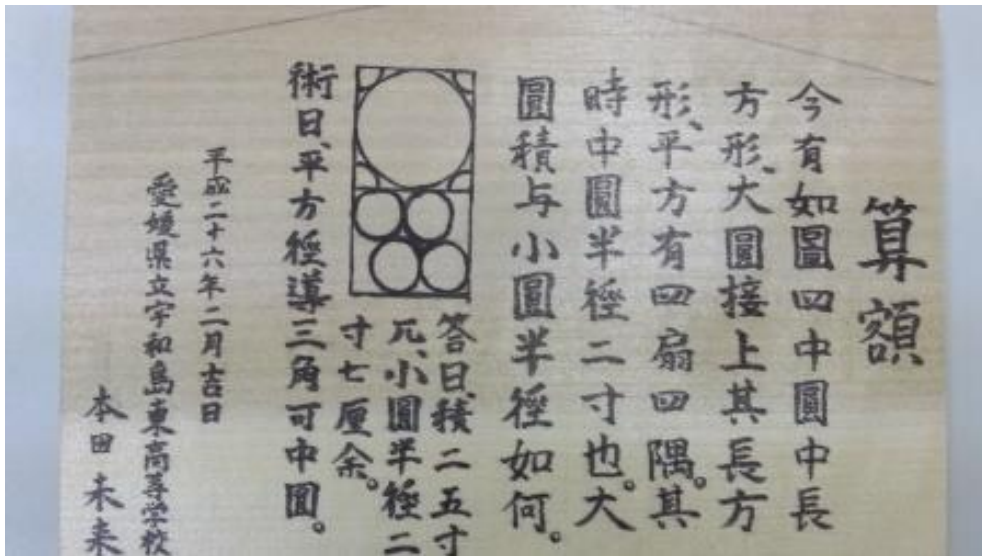 算額
今有如圖四中圓中長
方形、大圓接上其長方
形、平方有四扇四隅。其
時中圓半徑二寸也。大
圓積与小圓半徑如何。
答曰、積二五寸
兀、小圓半徑二
寸七厘余。
術曰、平方徑導三角可中圓。
平成二十六年二月吉日
愛媛県立宇和島東高等学校
本田未来